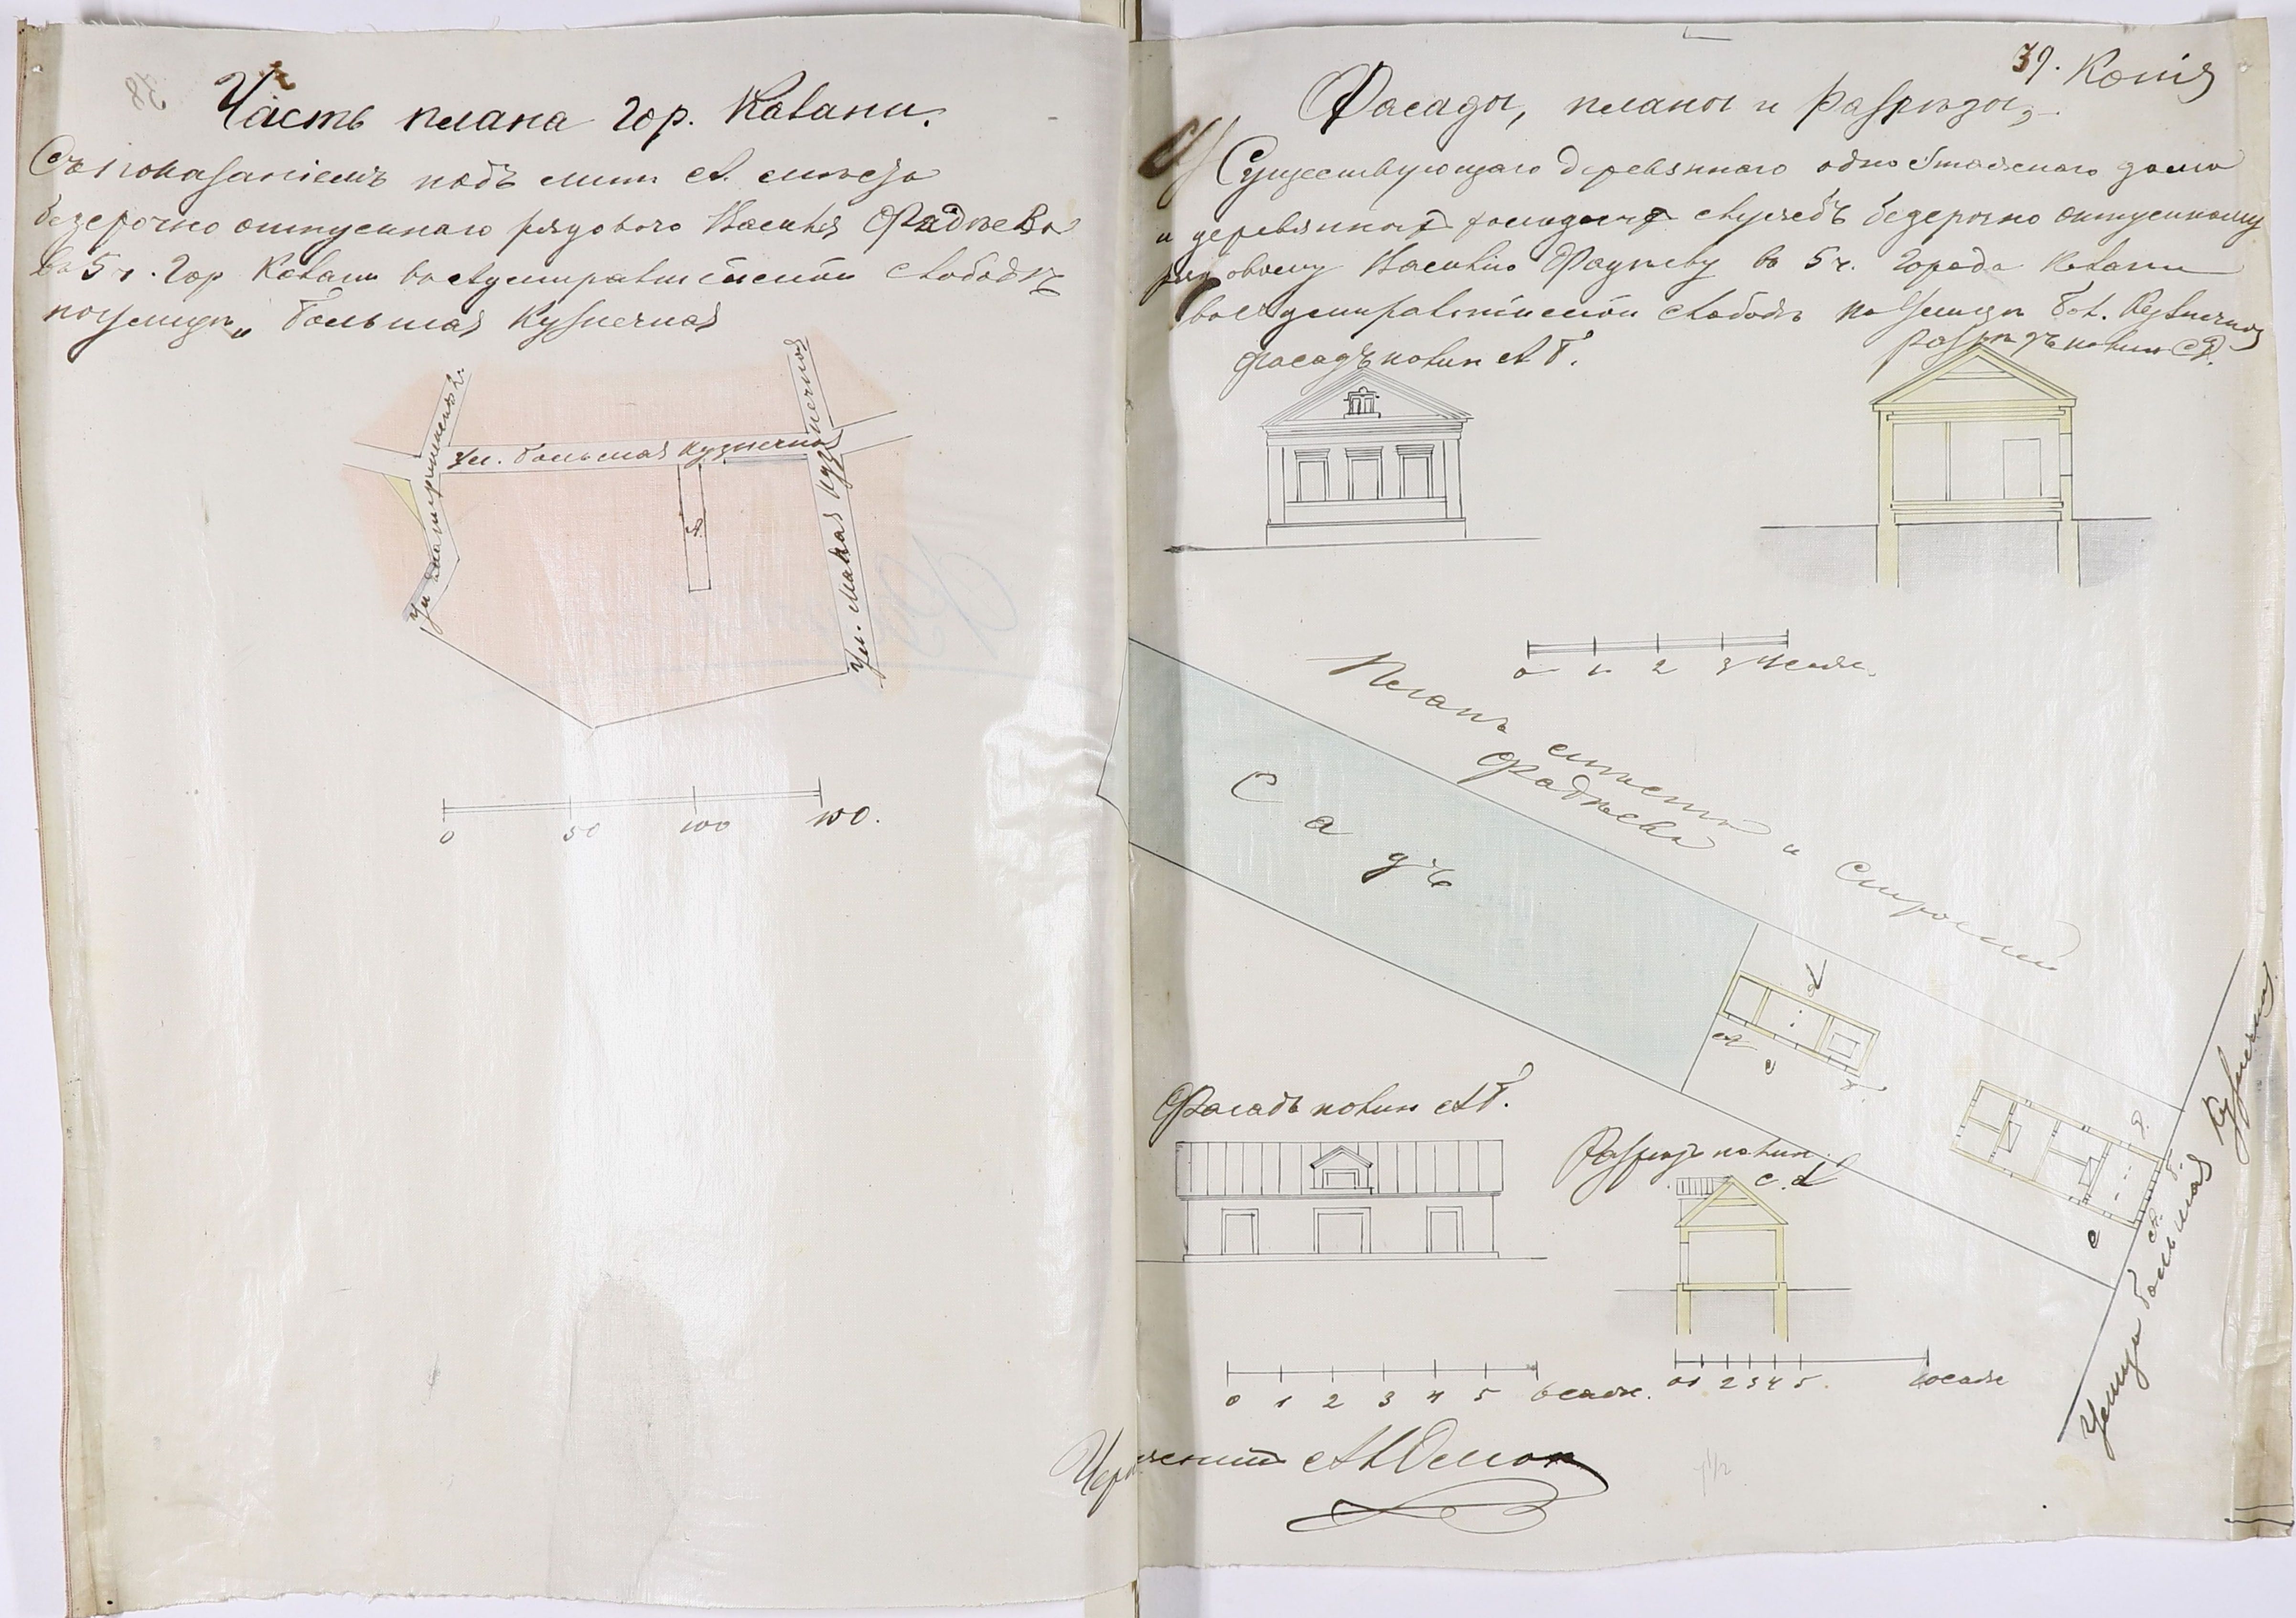 Часть плана гор. Казани.
Съ показаніемъ подъ лит. А. мѣста
безсрочно отпускнаго рядового Василія Фадѣева
въ 5 ч. гор Казани въ Адмиралтейской слободѣ
по улицѣ „ Большая Кузнечная
ул. Большая Кузнечная
Ул. Малая Кузнечная
А.
0 50 100 150.
39. Копія
Фасады, планы и разрѣзы,
Существующаго деревяннаго одноэтажнаго дома
и деревянныхъ службъ безсрочно отпускному
рядовому Василію Фадѣеву въ 5 ч. города Казани
въ Адмиралтейской слободѣ по улицѣ Бол. Кузнечной
фасадъ по лин А Б.
Разрѣзъ по лин С Д.
0 1 2 3 4 саж.
Планъ мѣста и строеній
Фадѣева
Садъ
d
c
Фасадъ по лин А Б.
Разрѣзъ по лин.
c. d
А.
Б.
Д.
с
Улица Большая Кузнечная
0 1 2 3 4 5 6 саж.
0 1 2 3 4 5 10 саж